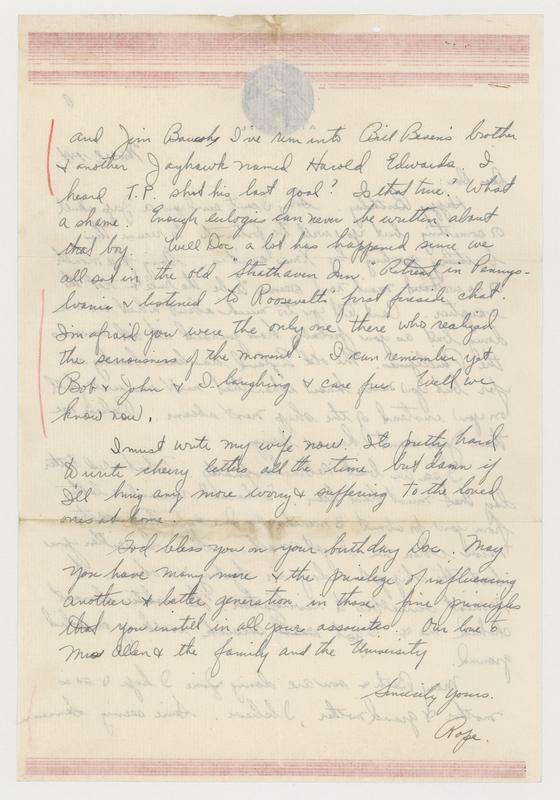 and Jim Bausch. I've run into Bill Beven's brother
& another Jayhawk named Harold Edwards. I
heard T.P. shot his last goal? Is that true? What
a shame. Enough eulogies can never be written about
that boy. Well Doc a lot has happened since we
all sat in the old "Strathaven Inn" Retreat in Pennys-
lvania & listened to Roosevelts' first fireside chat.
I'm afraid you were the only one there who realized
the seriousness of the moment. I can remember yet
Bob & John & I laughing & care free. Well we
know now.
I must write my wife now. Its pretty hard
to write cheery letters all the time but damn if
I'll bring any more worry & suffering to the loved
ones at home.
God bless you on your birthday Doc. May
you have many more & the privilege of influencing
another & better generation in those fine principles
that you instill in all your associates. Our love to
Mrs Allen & the family and the University
Sincerely Yours.
Rope.